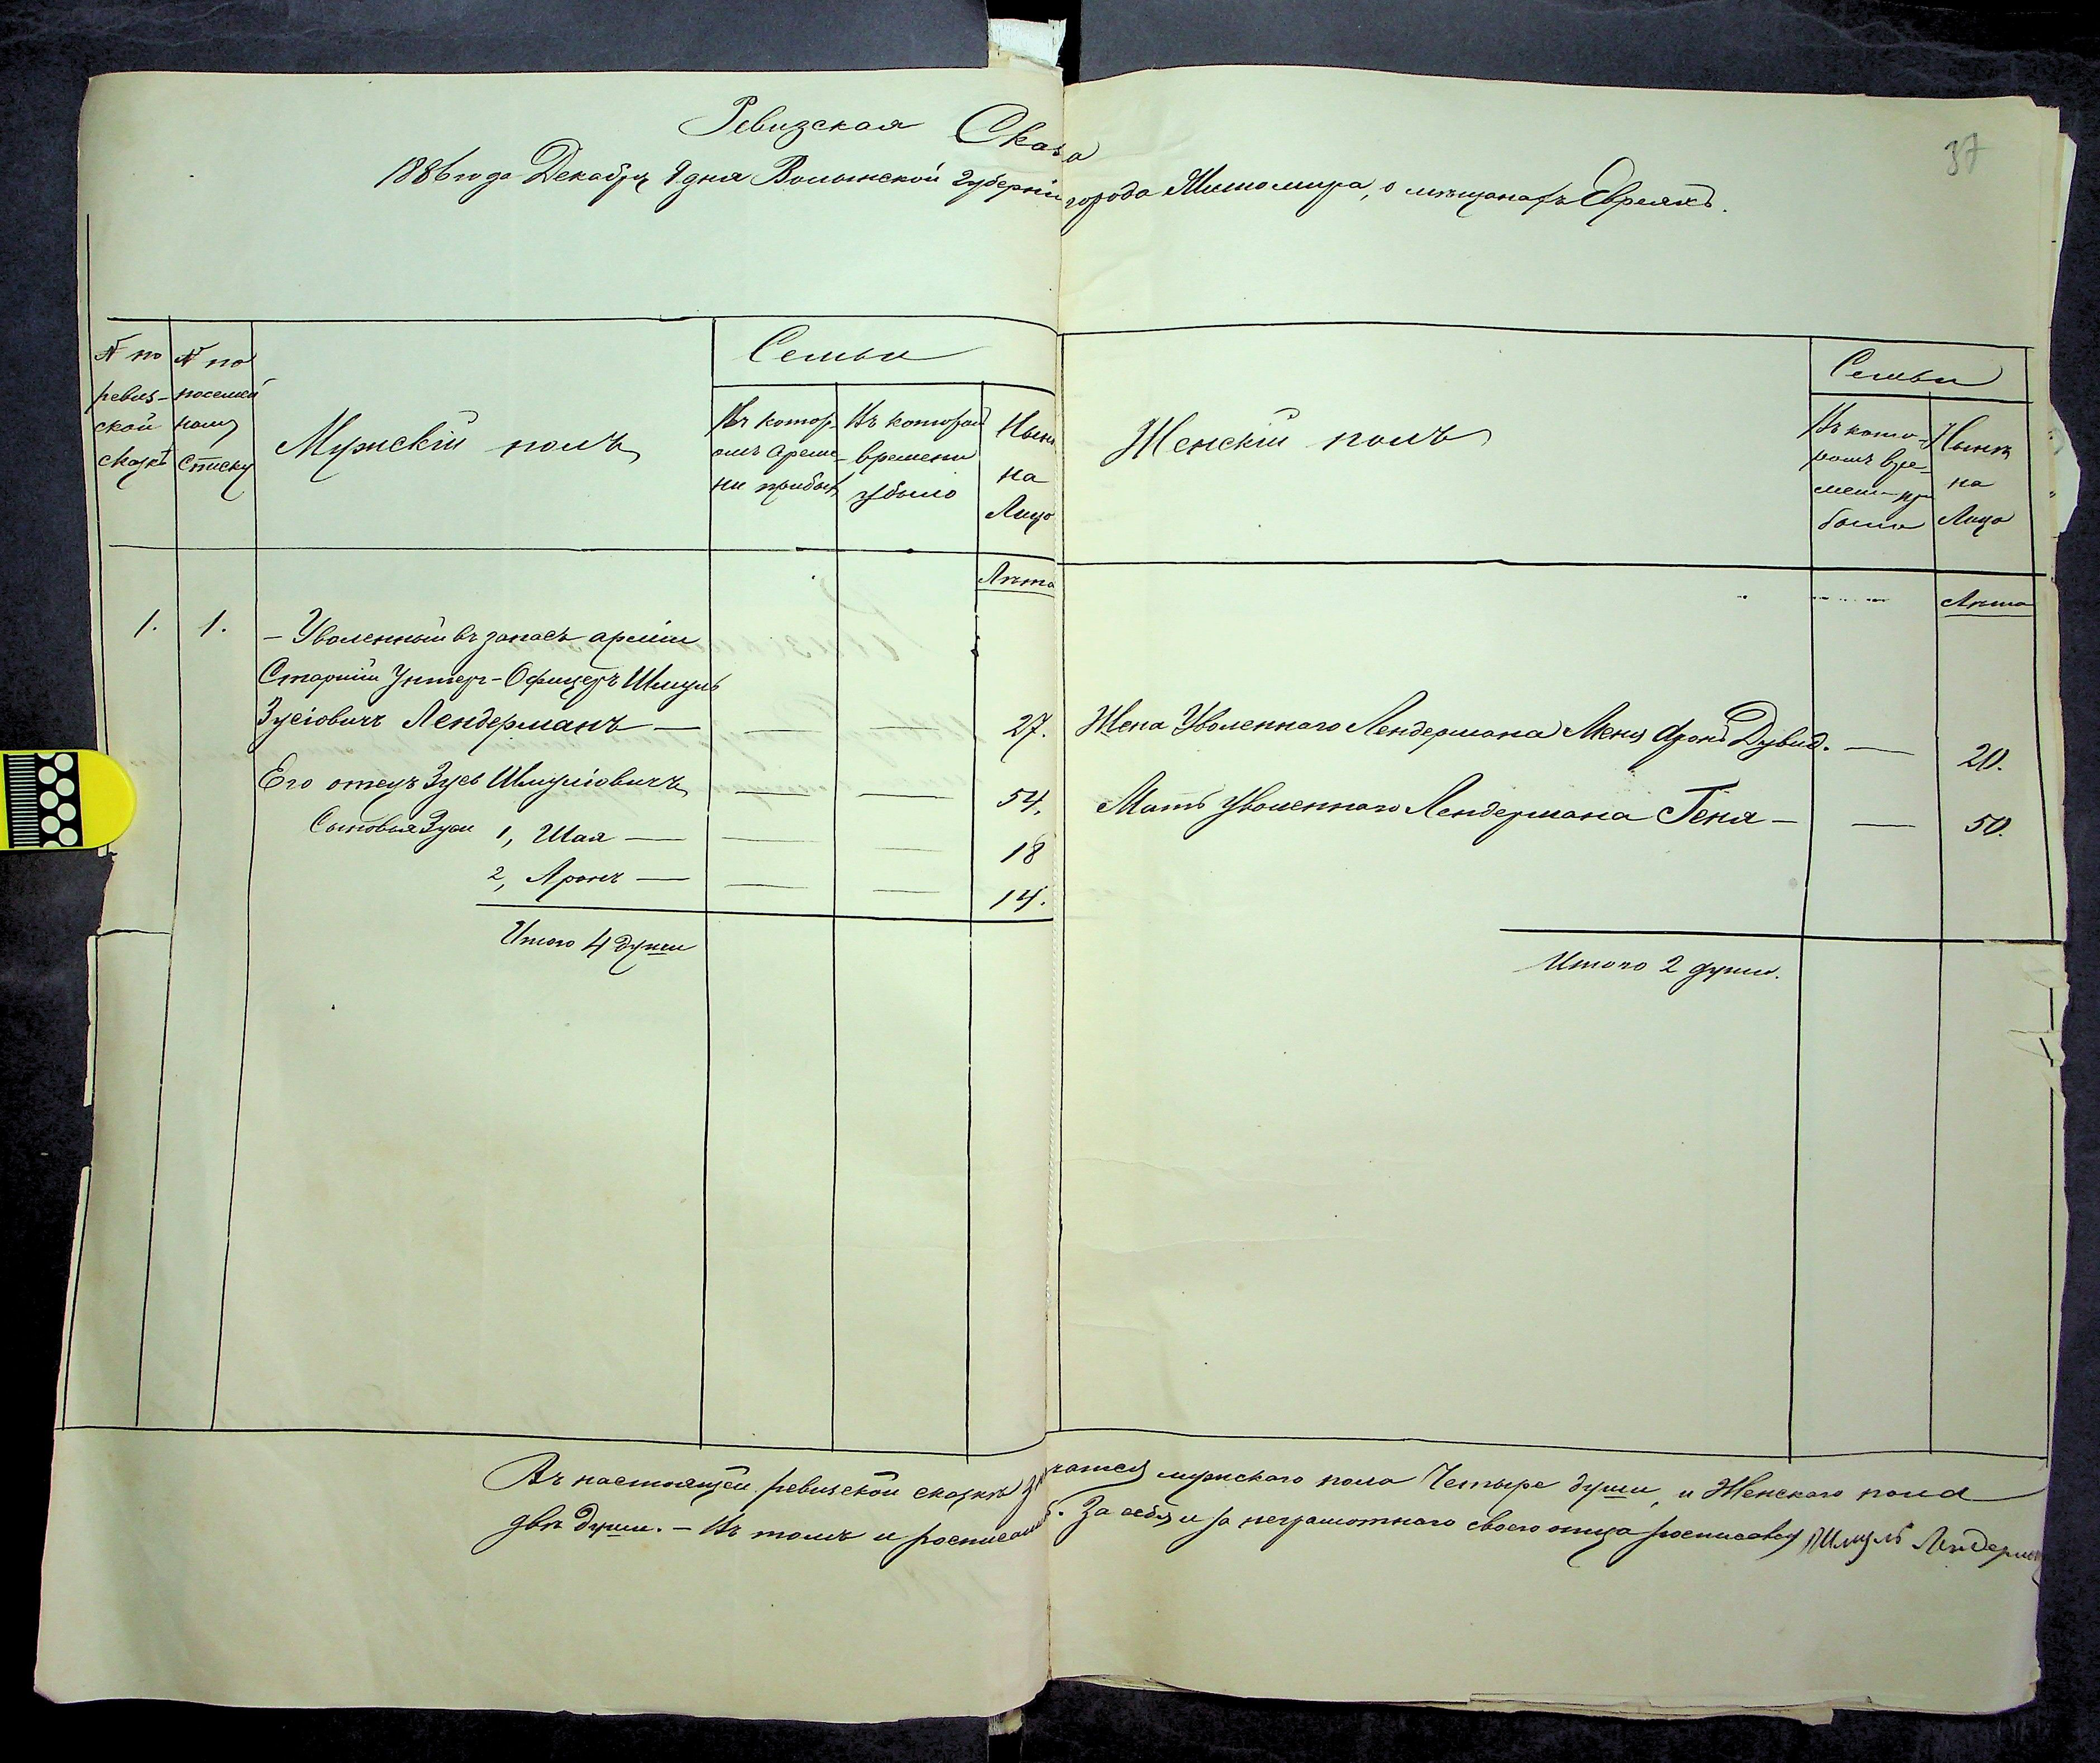 37
Ревизская Сказка
1886 года Декабря 9 дня Волынской Губерніи города Житомира, о мѣщанахъ Евреяхъ.
№ по ревиз-
ской
сказкѣ
№ по
посемей
ному
списку
Мужскій полъ
Семьи
Въ котор-
омъ време-
ни прибыл
Въ которой
времени
убыло
Нынѣ
на
Лицо
Женскій полъ
Семьи
Въ кото-
ромъ вре-
мени при
было
Нынѣ
на
Лицо
Лѣта
Лѣта
1. 1. - Уволенный въ запасъ арміи
Старшій Унтеръ-Офицеръ Шмуль
Зусіовичъ Лендерманъ — — — 27.
Жена Уволеннаго Лендермана Меня Аронъ Дувид. — 20.
Его отецъ Зусь Шмуліовичъ — — 54.
Мать Уволеннаго Лендермана Геня — — 50.
Сыновья Зуси 1, Шая — — — 18
2, Аронъ — — — 14.
Итого 4 души
Итого 2 души.
Въ настоящей ревизской сказкѣ значатся мужскаго пола Четыре души, и Женскаго пола
двѣ души. - Въ томъ и росписались. За себя и за неграмотнаго своего отца росписался Шмуль Лендерман